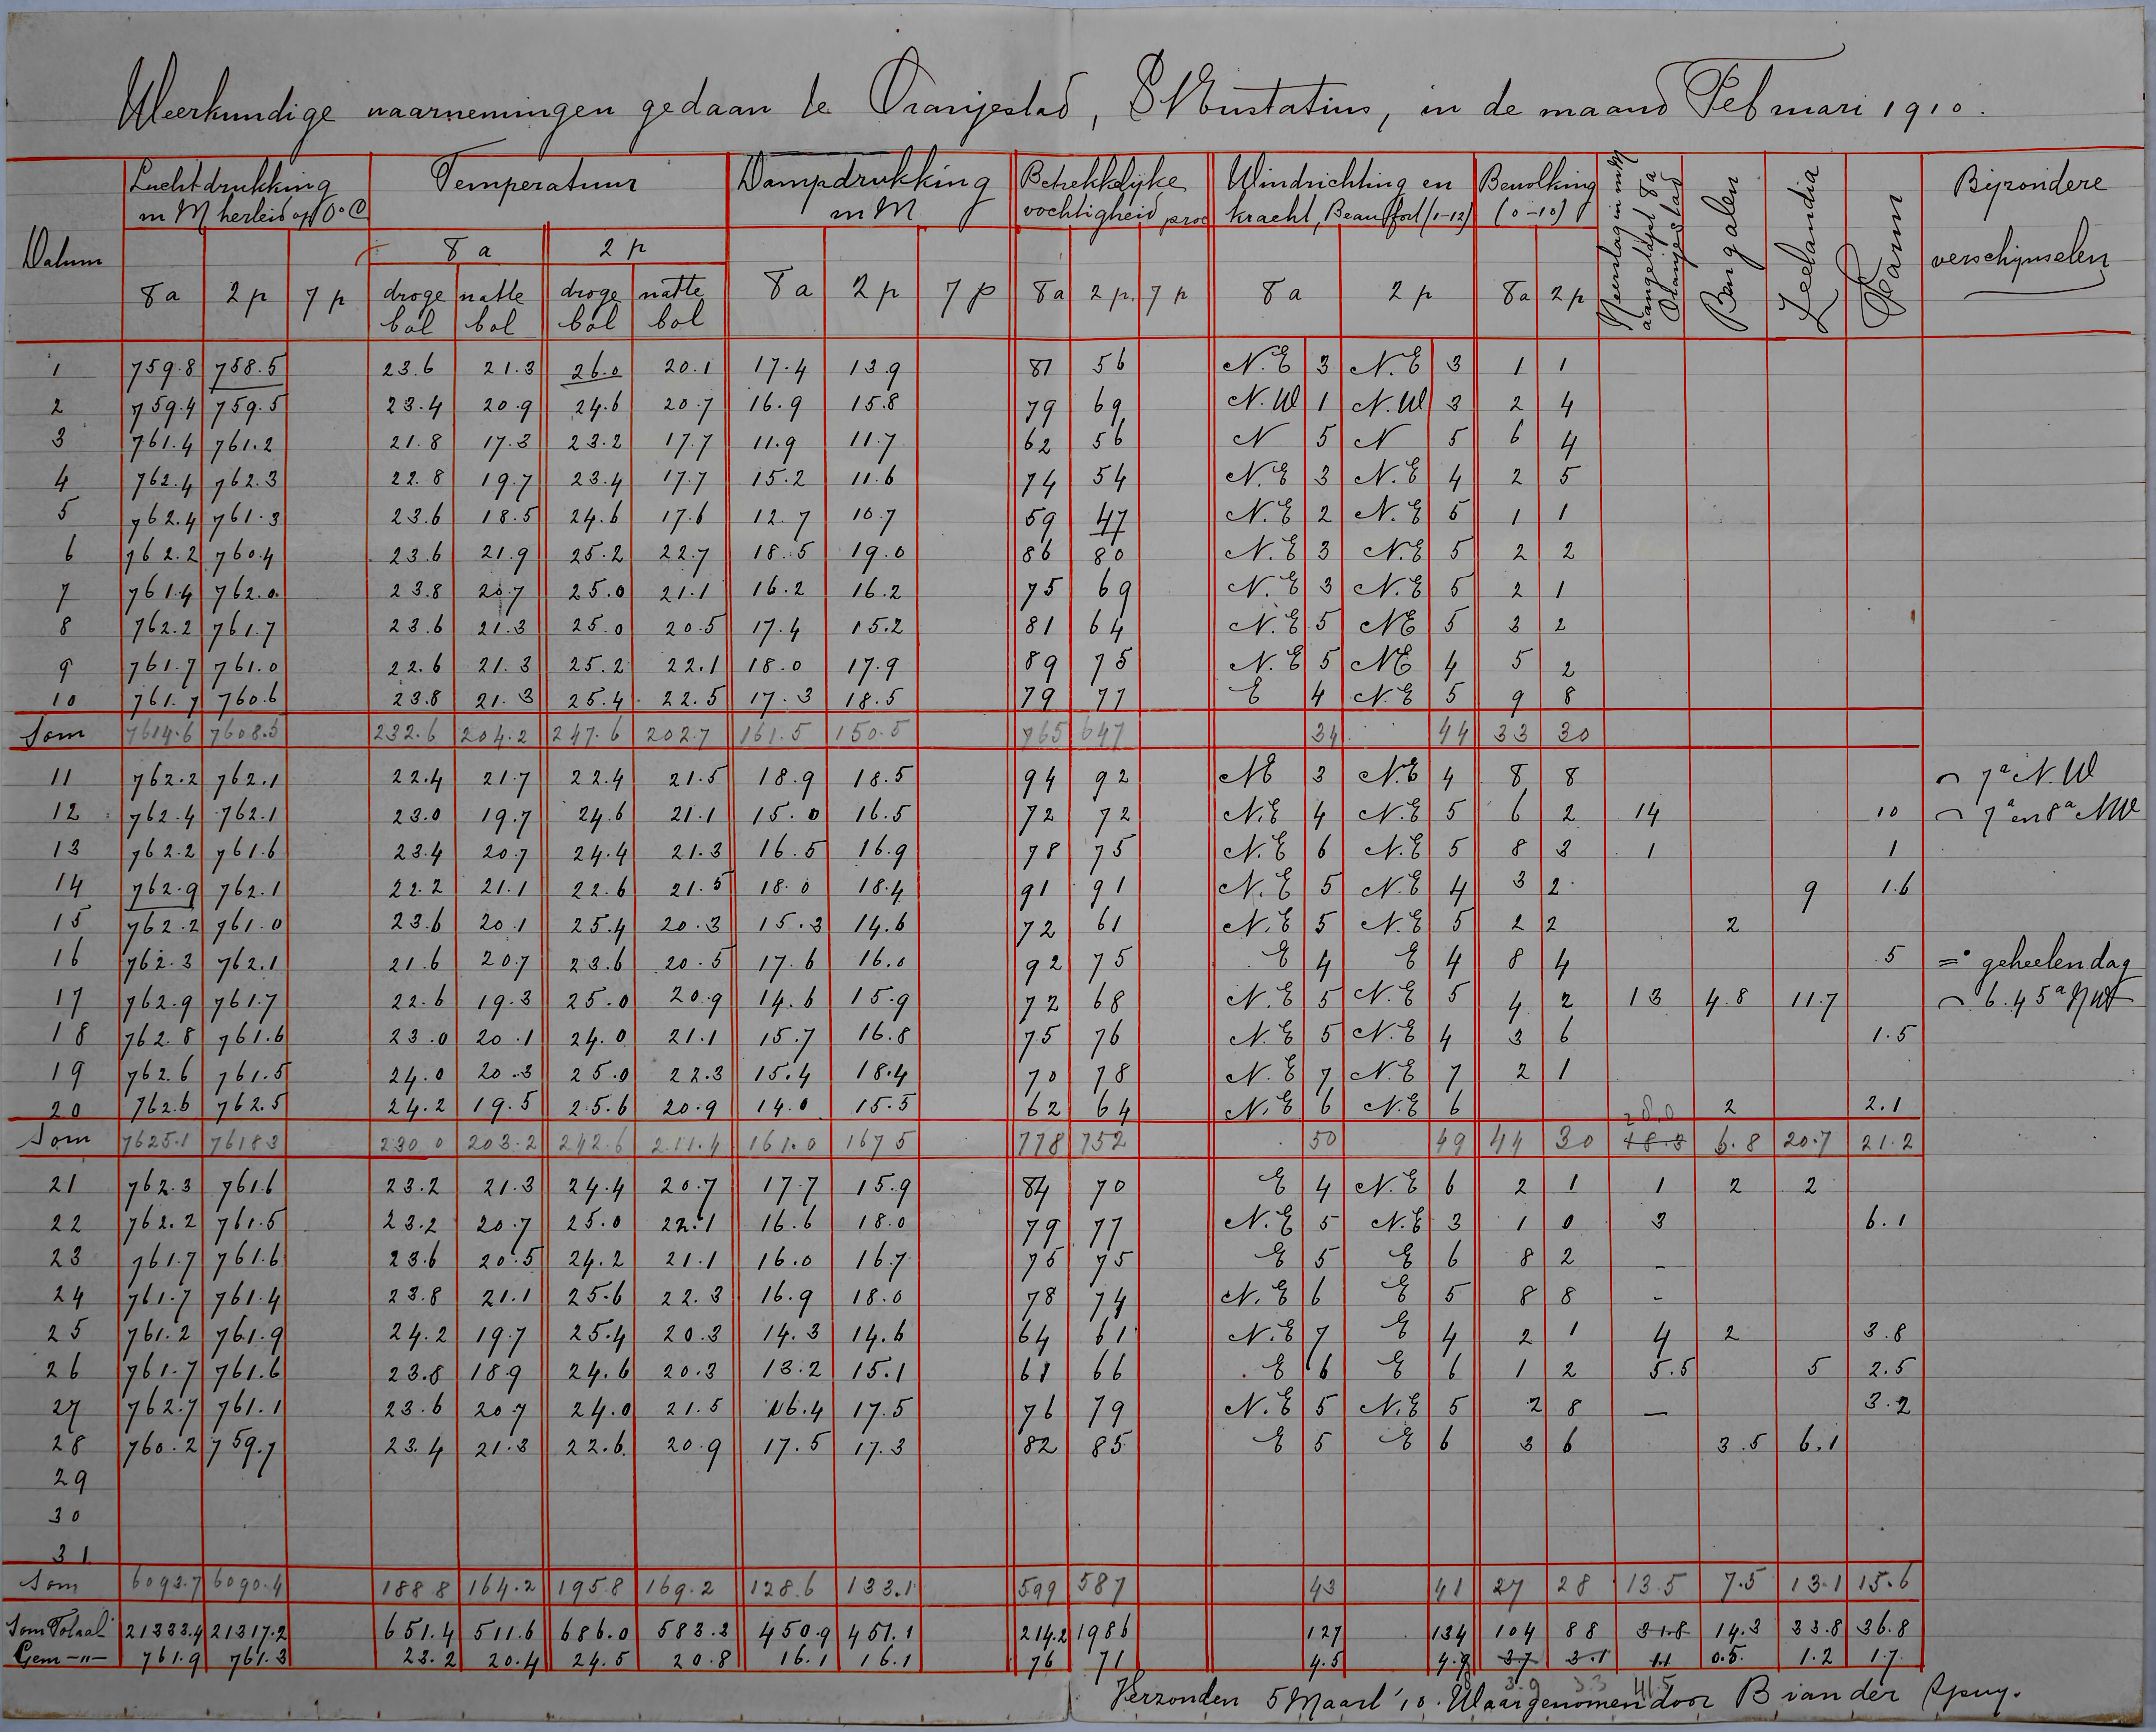 Weerkundige waarnemingen gedaan te Oranjestad, St Eustatius, in de maand Februari 1910.
Datum Luchtdrukking in M herleid op 0° C Temperatuur Dampdrukking m M Betrekkelijke vochtigheid proc Windrichting en kracht, Beaufort (0-12) Bewolking (0-10) Neerslag in mM aangetapt 8a Oranjestad Bengalen Zeelandia Farm Bijzondere verschijnselen
8 a 2 p
8a 2p 7p droge bol natte bol droge bol natte bol 8a 2p 7p 8a 2p. 7p 8a 2p 8a 2p
1 759.8 758.5 23.6 21.3 26.0 20.1 17.4 13.9 81 56 N.E 3 N.E 3 1 1
2 759.4 759.5 23.4 20.9 24.6 20.7 16.9 15.8 79 69 N.W 1 N.W 3 2 4
3 761.4 761.2 21.8 17.3 23.2 17.7 11.9 11.7 62 56 N 5 N 5 6 4
4 762.4 762.3 22.8 19.7 23.4 17.7 15.2 11.6 74 54 N.E 3 N.E 4 2 5
5 762.4 761.3 23.6 18.5 24.6 17.6 12.7 10.7 59 47 N.E 2 N.E 5 1 1
6 762.2 760.4 23.6 21.9 25.2 22.7 18.5 19.0 86 80 N.E 3 N.E 5 2 2
7 761.4 762.0 23.8 20.7 25.0 21.1 16.2 16.2 75 69 N.E 3 N.E 5 2 1
8 762.2 761.7 23.6 21.3 25.0 20.5 17.4 15.2 81 64 N.E 5 NE 5 3 2
9 761.7 761.0 22.6 21.3 25.2 22.1 18.0 17.9 89 75 N.E 5 NE 4 5 2
10 761.7 760.6 23.8 21.3 25.4 22.5 17.3 18.5 79 77 E 4 N.E 5 9 8
Som 7614.6 7608.5 232.6 204.2 247.6 202.7 161.5 150.5 765 647 34 44 33 30
11 762.2 762.1 22.4 21.7 22.4 21.5 18.9 18.5 94 92 NE 3 N.E 4 8 8 ⌒ 7a N.W
12 762.4 762.1 23.0 19.7 24.6 21.1 15.0 16.5 72 72 N.E 4 N.E 5 6 2 14 10 ⌒ 7a en 8a NW
13 762.2 761.6 23.4 20.7 24.4 21.3 16.5 16.9 78 75 N.E 6 N.E 5 8 3 1 1
14 762.9 762.1 22.2 21.1 22.6 21.5 18.0 18.4 91 91 N.E 5 N.E 4 3 2 9 1.6
15 762.2 761.0 23.6 20.1 25.4 20.3 15.3 14.6 72 61 N.E 5 N.E 5 2 2 2
16 762.3 762.1 21.6 20.7 23.6 20.5 17.6 16.0 92 75 E 4 E 4 8 4 5 =° geheelen dag
17 762.9 761.7 22.6 19.3 25.0 20.9 14.6 15.9 72 68 N.E 5 N.E 5 4 2 13 4.8 11.7 ⌒ 6.45a NW
18 762.8 761.6 23.0 20.1 24.0 21.1 15.7 16.8 75 76 N.E 5 N.E 4 3 6 1.5
19 762.6 761.5 24.0 20.3 25.0 22.3 15.4 18.4 70 78 N.E 7 N.E 7 2 1
20 762.6 762.5 24.2 19.5 25.6 20.9 14.0 15.5 62 64 N.E 6 N.E 6 2 2.1
28.0
Som 7625.1 7618.3 230.0 203.2 242.6 211.4 161.0 167.5 778 752 50 49 44 30 18.3 6.8 20.7 21.2
21 762.3 761.6 23.2 21.3 24.4 20.7 17.7 15.9 84 70 E 4 N.E 6 2 1 1 2 2
22 762.2 761.5 23.2 20.7 25.0 22.1 16.6 18.0 79 77 N.E 5 N.E 3 1 0 3 6.1
23 761.7 761.6 23.6 20.5 24.2 21.1 16.0 16.7 75 75 E 5 E 6 8 2 -
24 761.7 761.4 23.8 21.1 25.6 22.3 16.9 18.0 78 74 N.E 6 E 5 8 8 -
25 761.2 761.9 24.2 19.7 25.4 20.3 14.3 14.6 64 61 N.E 7 E 4 2 1 4 2 3.8
26 761.7 761.6 23.8 18.9 24.6 20.3 13.2 15.1 61 66 E 6 E 6 1 2 5.5 5 2.5
27 762.7 761.1 23.6 20.7 24.0 21.5 16.4 17.5 76 79 N.E 5 N.E 5 2 8 — 3.2
28 760.2 759.7 23.4 21.3 22.6 20.9 17.5 17.3 82 85 E 5 E 6 3 6 3.5 6.1
29
30
31
Som 6093.7 6090.4 188.8 164.2 195.8 169.2 128.6 133.1 599 587 43 41 27 28 13.5 7.5 13.1 15.6
Som Totaal 21333.4 21317.2 651.4 511.6 686.0 583.3 450.9 451.1 214.2 1986 127 134 104 88 31.8 14.3 33.8 36.8
Gem -"- 761.9 761.3 23.2 20.4 24.5 20.8 16.1 16.1 76 71 4.5 4.8 3.7 3.1 1.1 0.5. 1.2 1.7
3.9 3.3 41.5
Verzonden 5 Maart '10. Waargenomen door B van der Spuy.